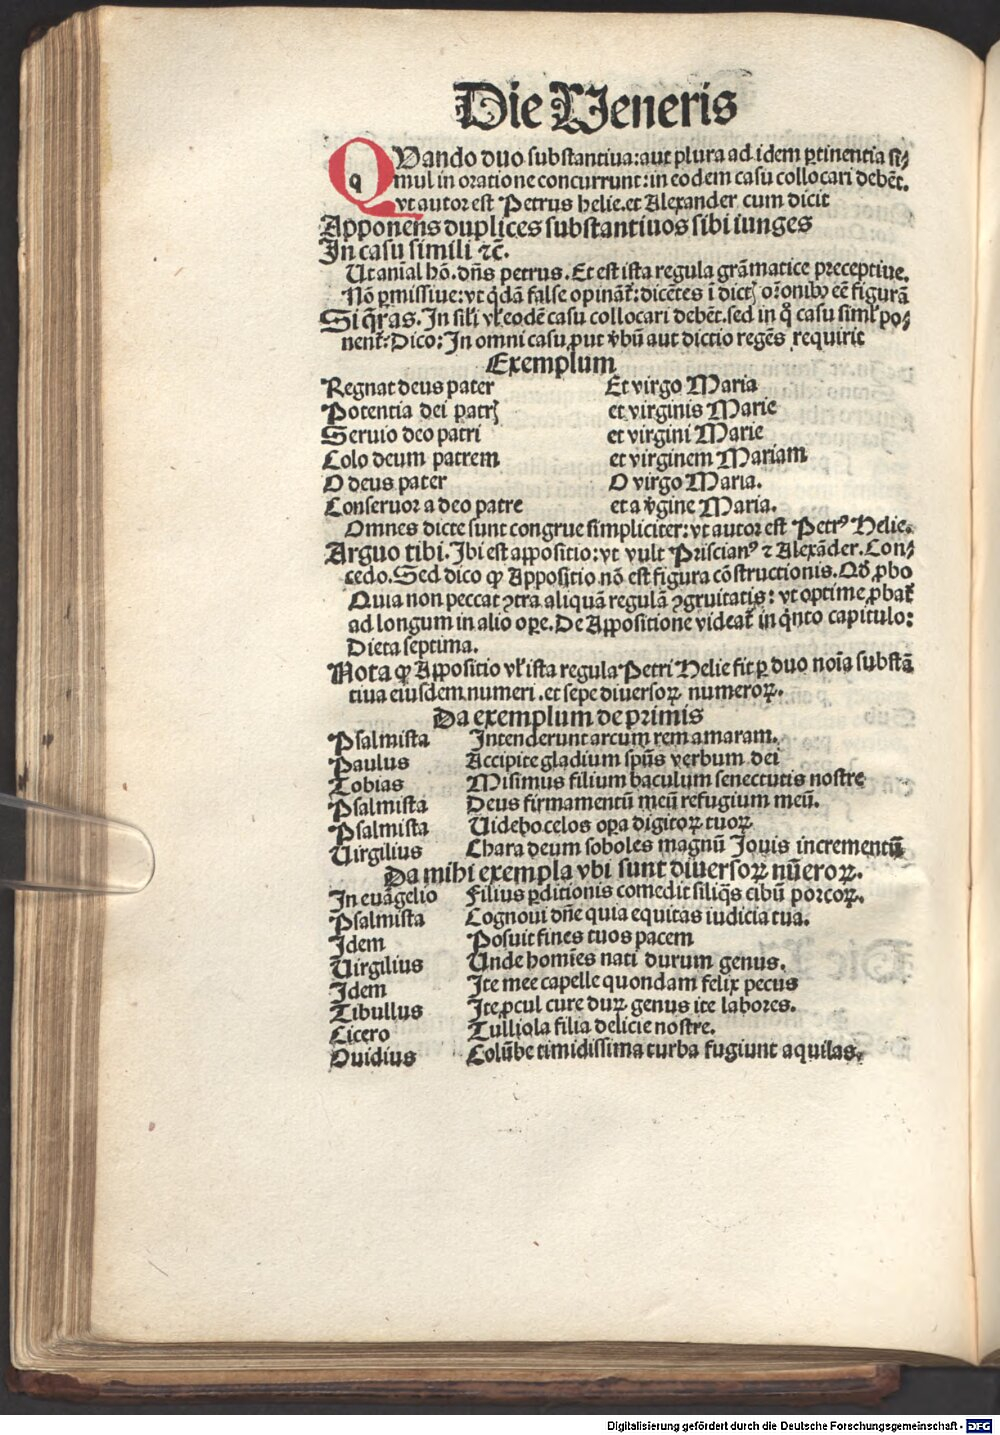 Die Veneris
QUando duo substantiua: aut plura ad idem ꝑtinentia si⸗
mul in oratione concurrunt: in eodem casu collocari debēt.
vt autor est Petrus helie. et Alexander cum dicit
Apponens duplices substantiuos sibi iunges
In casu simili ⁊c̄.
Ut anīal hō. dn̄s petrus. Et est ista regula grāmatice preceptiue.
Nō ꝑmissiue: vt q̇dā false opināt̄: dicētes ī dictꝭ or̄onibꝰ eē figurā
Si q̄ras. In sil̄i vl̄ eodē casu collocari debēt. sed in q̊ casu siml̄ po⸗
nent̄: Dico: In omni casu ꝓut v̄bū aut dictio regēs requirit
Exemplum
Regnat deus pater Et virgo Maria
Potentia dei patrꝭ et virginis Marie
Seruio deo patri et virgini Marie
Colo deum patrem et virginem Mariam
O deus pater O virgo Maria.
Conseruor a deo patre et a v̄gine Maria.
Omnes dicte sunt congrue simpliciter: vt autor est Petrꝰ Helie.
Arguo tibi. Ibi est appositio: vt vult Priscianꝰ ⁊ Alexāder. Con⸗
cedo. Sed dico ꝙ Appositio nō est figura cōstructionis. Qḋ ꝓbo
Quia non peccat ꝯtra aliquā regulā ꝯgruitatis: vt optime ꝓbat̄
ad longum in alio oꝑe. De Appositione videat̄ in q̇nto capitulo:
Dieta septima.
Nota ꝙ Appositio vl̄ ista regula Petri Helie fit ꝑ duo noīa substā
tiua eiusdem numeri. et sepe diuersoꝝ numeroꝝ.
Da exemplum de primis
Psalmista Intenderunt arcum rem amaram.
Paulus Accipite gladium spūs verbum dei
Tobias Misimus filium baculum senectutis nostre
Psalmista Deus firmamentū meū refugium meū.
Psalmista Uidebo celos oꝑa digitoꝝ tuoꝝ
Uirgilius Chara deum soboles magnū Iouis incrementū
Da mihi exempla vbi sunt diuersoꝝ nūeroꝝ.
In euāgelio Filius ꝑditionis comedit siliq̄s cibū porcoꝝ.
Psalmista Cognoui dn̄e quia equitas iudicia tua.
Idem Posuit fines tuos pacem
Uirgilius Unde homīes nati durum genus.
Idem Ite mee capelle quondam felix pecus
Tibullus Ite ꝓcul cure duꝝ genus ite labores.
Cicero Tulliola filia delicie nostre.
Ouidius Colūbe timidissima turba fugiunt aquilas.
Digitalisierung gefördert durch die Deutsche Forschungsgemeinschaft - DFG